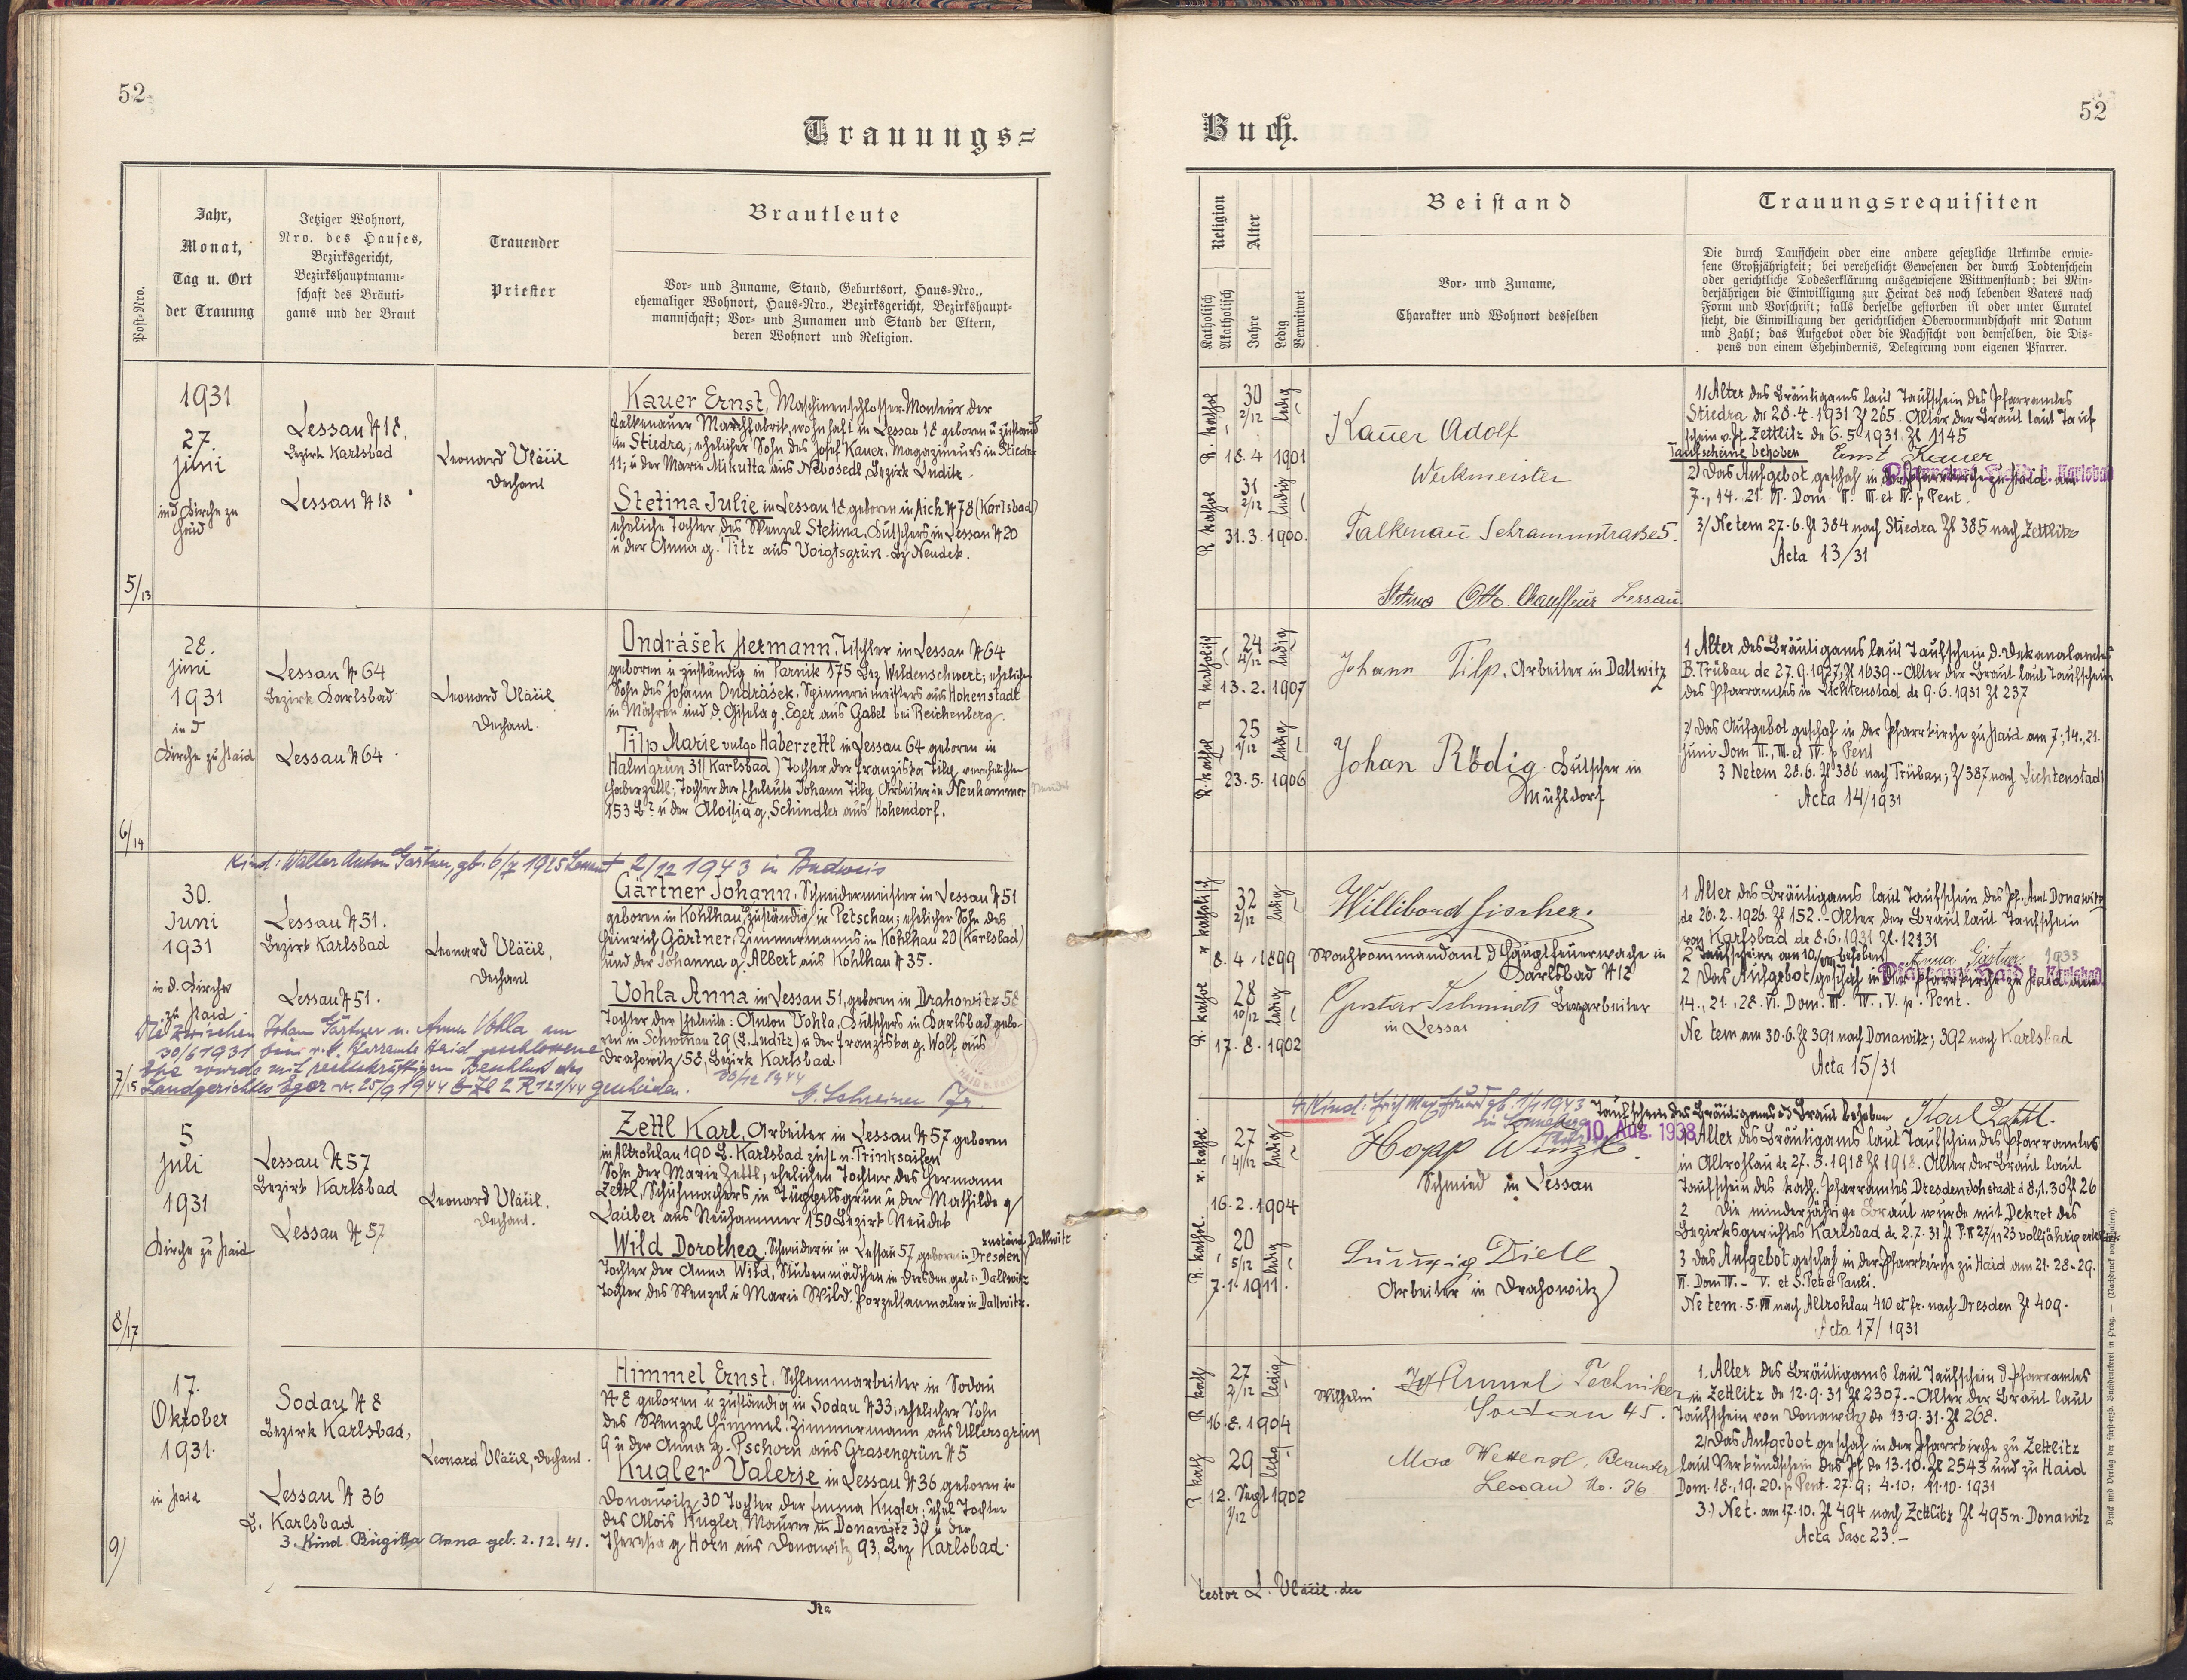 52
Trauungs=
Post-Nro.
Jahr,
Monat,
Tag u. Ort
der Trauung
Jetziger Wohnort,
Nro. des Hauses,
Bezirksgericht,
Bezirkshauptmann-
schaft des Bräuti-
gams und der Braut
Trauender
Priester
Brautleute
Vor- und Zuname, Stand, Geburtsort, Haus-Nro.,
ehemaliger Wohnort, Haus-Nro., Bezirksgericht, Bezirkshaupt-
mannschaft; Vor- und Zunamen und Stand der Eltern,
deren Wohnort und Religion.
5/13
1931
27.
juni
in d Kirche zu
Haid
Lessau № 18,
Bezirk Karlsbad
Lessau № 18
Leonard Vláčil
Dechant
Kauer Ernst, Maschinenschlosser-Monteur der
Falkenauer Maschfabrik, wohnhaft in Lessau 18 geboren u zuständ
in Stiedra; ehelicher Sohn des Josef Kauer, Magazineurs in Stiedra
11; u der Marie Mikutta aus Nebosedl, Bezirk Luditz.
Stetina Julie in Lessau 18 geboren in Aich № 78 (Karlsbad)
eheliche Tochter des Wenzel Stetina, Kutschers in Lessau № 20
u der Anna g. Titz aus Voigtsgrün. Bz Neudek.
6/14
28.
juni
1931
in d
Kirche zu Haid
Lessau № 64
Bezirk Karlsbad
Lessau № 64
Leonard Vláčil
Dechant.
Ondrášek Hermann, Tischler in Lessau № 64
geboren u zuständig in Parnik 175 Bez Wildenschwert; ehelicher
Sohn des Johann Ondrášek, Spinnereimeisters aus Hohenstadt
in Mähren und d. Gisela g. Eger aus Gabel bei Reichenberg.
Tilp Marie vulgo Haberzettl in Lessau 64 geboren in
Halmgrün 31 (Karlsbad) Tochter der Franziska Tilp, verehelichte
Haberzettl; Tochter der Eheleute Johann Tilp Arbeiter in Neuhammer
153 u der Aloisia g. Schindler aus Hohendorf.
Kind: Walter Anton Gärtner, gb. 6/7 1925 2/12 1943 in Budweis
7/15
30.
Juni
1931
in d. Kirche
zu Haid
Lessau № 51.
Bezirk Karlsbad
Lessau № 51.
Leonard Vláčil,
Dechant
Gärtner Johann, Schneidermeister in Lessau № 51
geboren in Kohlhau, zuständig in Petschau; ehelicher Sohn des
Heinrich Gärtner, Zimmermanns in Kohlhau 20 (Karlsbad)
und der Johanna g. Albert aus Kohlhau № 35.
Vohla Anna in Lessau 51, geboren in Drahowitz 58
Tochter der Eheleute: Anton Vohla, Kutschers in Karlsbad gebo-
ren in Schwinau 29 (B. Luditz) u der Franziska g. Wolf aus
Drahowitz 58, Bezirk Karlsbad.
Die zwischen Johann Gärtner u. Anna Vohla am
30/6 1931 beim r. k. Pfarramte Haid geschlossene
Ehe wurde mit rechtskräftigem Beschluß des
Landgerichtes Eger v. 25/9 1944 G Zl 2 R 121/44 geschieden.
30/12 1944
G. Schreiner Pfr.
8/17
5
juli
1931
Kirche zu Haid
Lessau № 57
Bezirk Karlsbad
Lessau № 57
Leonard Vláčil.
Dechant.
Zettl Karl, Arbeiter in Lessau № 57 geboren
in Altrohlau 190 B. Karlsbad zust n. Trinksaifen
Sohn der Marie Zettl, ehelichen Tochter des Hermann
Zettl, Schuhmachers in Tüppelsgrün u der Mathilde g
Lauber aus Neuhammer 150 Bezirk Neudek
Wild Dorothea, Schneiderin in Lessau 57 geboren in Dresden zuständ. Dallwitz
Tochter der Anna Wild, Stubenmädchen in Dresden geb in Dallwitz
Tochter des Wenzel u Marie Wild. Porzellanmaler in Dallwitz.
9)
17.
Oktober
1931.
in Haid
Sodau № 8
Bezirk Karlsbad,
Lessau № 36
B. Karlsbad
3. Kind Birgitta Anna geb. 2.12.41.
Leonard Vláčil, Dechant.
Himmel Ernst, Schlemmarbeiter in Sodau
№ 8 geboren u zuständig in Sodau № 33; ehelicher Sohn
des Wenzel Himmel, Zimmermann aus Ullersgrün
9 u der Anna g. Pschorn aus Grasengrün № 5
Kugler Valerie in Lessau № 36 geboren in
Donawitz 30 Tochter der Emma Kugler; ehel Tochter
des Alois Kugler Maurer in Donawitz 30 u der
Theresia g Horn aus Donawitz 93, Bez Karlsbad.
Ita
52
Buch.
Religion
Katholisch
Akatholisch
Alter
Jahre
Ledig
Verwitwet
Beistand
Vor- und Zuname,
Charakter und Wohnort desselben
Trauungsrequisiten
Die durch Taufschein oder eine andere gesetzliche Urkunde erwie-
sene Großjährigkeit; bei verehelicht Gewesenen der durch Todtenschein
oder gerichtliche Todeserklärung ausgewiesene Wittwenstand; bei Min-
derjährigen die Einwilligung zur Heirat des noch lebenden Vaters nach
Form und Vorschrift; falls derselbe gestorben ist oder unter Curatel
steht, die Einwilligung der gerichtlichen Obervormundschaft mit Datum
und Zahl; das Aufgebot oder die Nachsicht von demselben, die Dis-
pens von einem Ehehindernis, Delegirung vom eigenen Pfarrer.
R. kathol
30
2/12
ledig
18.4 1901
R kathol
31
2/12
ledig
31.3.1900.
Kauer Adolf
Werkmeister
Falkenau Schrammstraße 5.
Stetina Otto. Chauffeur Lessau
1/ Alter des Bräutigams laut Taufschein des Pfarramtes
Stiedra de 28.4.1931 Zl 265. Alter der Braut laut Tauf
schein v. Pf. Zettlitz de 6.5.1931 Zl 1145
Taufscheine behoben Ernst Kauer
Pfarramt Haid b. Karlsbad
2) Das Aufgebot geschah in der Pfarrkirche zu Haid am
7., 14. 21. VI. Dom II. III et IV. p Pent.
3/ Ne tem 27.6. Zl 384 nach Stiedra Zl 385 nach Zettlitz
Acta 13/31
R katholisch
24
4/12
ledig
13.2.1907
R. kathol
25
1/12
ledig
23.5.1906
Johann Tilp, Arbeiter in Dallwitz
Johan Rödig Kutscher in
Mühldorf
1 Alter des Bräutigams laut Taufschein d. Dekanalamtes
B. Trübau de 27.9.1927, Zl 1639.- Alter der Braut laut Taufschein
des Pfarramtes in Lichtenstad de 9.6.1931 Zl 237
2/ Das Aufgebot geschah in der Pfarrkirche zu Haid am 7., 14., 21.
Juni Dom II., III. et IV. p Pent
3 Netem 28.6. Zl 386 nach Trübau; Z/387 nach Lichtenstadt
Acta 14/1931
r katholisch
32
2/12
ledig
8.4.1899
R. kathol
28
10/12
ledig
17.8.1902
Willibord Fischer.
Wachkommandant d Hauptfeuerwache in
Karlsbad № 12
Gustav Schmidt Bergarbeiter
in Lessau
1 Alter des Bräutigams laut Taufschein des Pf. Amt Donawitz
de 26.2.1926. Zl 152.- Alter der Braut laut Taufschein
von Karlsbad de 8.6.1931 Zl. 1231
2 Taufscheine am behoben Anna Gärtner 1933
Pfarramt Haid b. Karlsbad
2 Das Aufgebot geschah in der Pfarrkirche zu Haid am
14., 21., 28. VI. Dom. III. IV., V. p. Pent.
Ne tem am 30.6. Zl 391 nach Donawitz; 392 nach Karlsbad
Acta 15/31
4. Kind: Erich Max Eduard gb. 1/1 1943
in Sonneberg
Thür.
Taufscheine des Bräutigams u d Braut behoben Karl Zettl.
10. Aug. 1938
r. kathol.
27
4/12
ledig
16.2.1904
R. kathol.
20
5/12
ledig
7.1.1911.
Hopp Winzk.
Schmied in Lessau
Ludwig Dietl
Arbeiter in Drahowitz
1 Alter des Bräutigams laut Taufschein des Pfarramtes
in Altrohlau de 27.5.1918 Zl 1918. Alter der Braut laut
Taufschein des kath. Pfarramtes Dresden Johstadt d 8.1.30 Zl 26
2 Die minderjährige Braut wurde mit Dekret des
Bezirksgerichtes Karlsbad de 2.7.31 Zl P. II 27/11 23 volljährig erklärt.
3 Das Aufgebot geschah in der Pfarrkirche zu Haid am 21. 28-29.
VI. Dom IV.- V. et S. Pet et Pauli.
Ne tem. 5. VII nach Altrohlau 410 et fr. nach Dresden Zl 409.
Acta 17/1931
R kath
27
2/12
ledig
16.8.1904
R kath
29
1/12
ledg
12. Sept 1902
Wilhelm Himmel Techniker
Sodau 45.
Max Wettengl, Beamter
Lessau No. 36
1. Alter des Bräutigams laut Taufschein d. Pfarramtes
in Zettlitz de 12.9.31 Zl 2307.- Alter der Braut laut
Taufschein von Donawitz de 13.9.31. Zl 268.
2/ Das Aufgebot geschah in der Pfarrkirche zu Zettlitz
laut Verkündschein des Pf. de 13.10. Zl 2543 und zu Haid
Dom. 18., 19. 20. p Pent. 27.9; 4.10; 11.10.1931
3.) Ne t. am 17.10. Zl 494 nach Zettlitz Zl 495 n. Donawitz
Acta Fasc 23.-
testor L. Vláčil. dec
Druck und Verlag der fürst-erzb. Buchdruckerei in Prag. — (Nachdruck vorbehalten).